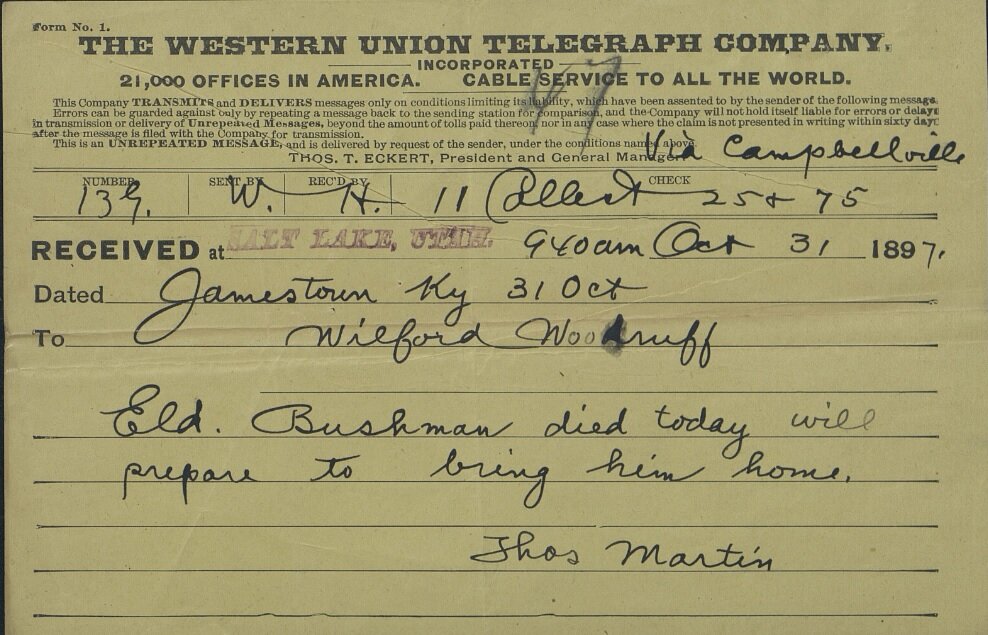 Form No. 1.
THE WESTERN UNION TELEGRAPH COMPANY.
INCORPORATED
21,000 OFFICES IN AMERICA. CABLE SERVICE TO ALL THE WORLD.
47
This Company TRANSMITS and DELIVERS messages only on conditions limiting its liability, which have been assented to by the sender of the following message.
Errors can be guarded against only by repeating a message back to the sending station for comparison, and the Company will not hold itself liable for errors or delays
in transmission or delivery of Unrepeated Messages, beyond the amount of tolls paid thereon, nor in any case where the claim is not presented in writing within sixty days
after the message is filed with the Company for transmission.
This is an UNREPEATED MESSAGE, and is delivered by request of the sender, under the conditions named above.
THOS. T. ECKERT, President and General Manager.
Via Campbellville
NUMBER SENT BY REC'D BY CHECK
139. W. H. 11 Collect 25 & 75
RECEIVED at SALT LAKE, UTAH. 940am Oct 31 1897.
Dated Jamestown Ky 31 Oct
To Wilford Woodruff
Eld. Bushman died today will
prepare to bring him home.
Thos Martin